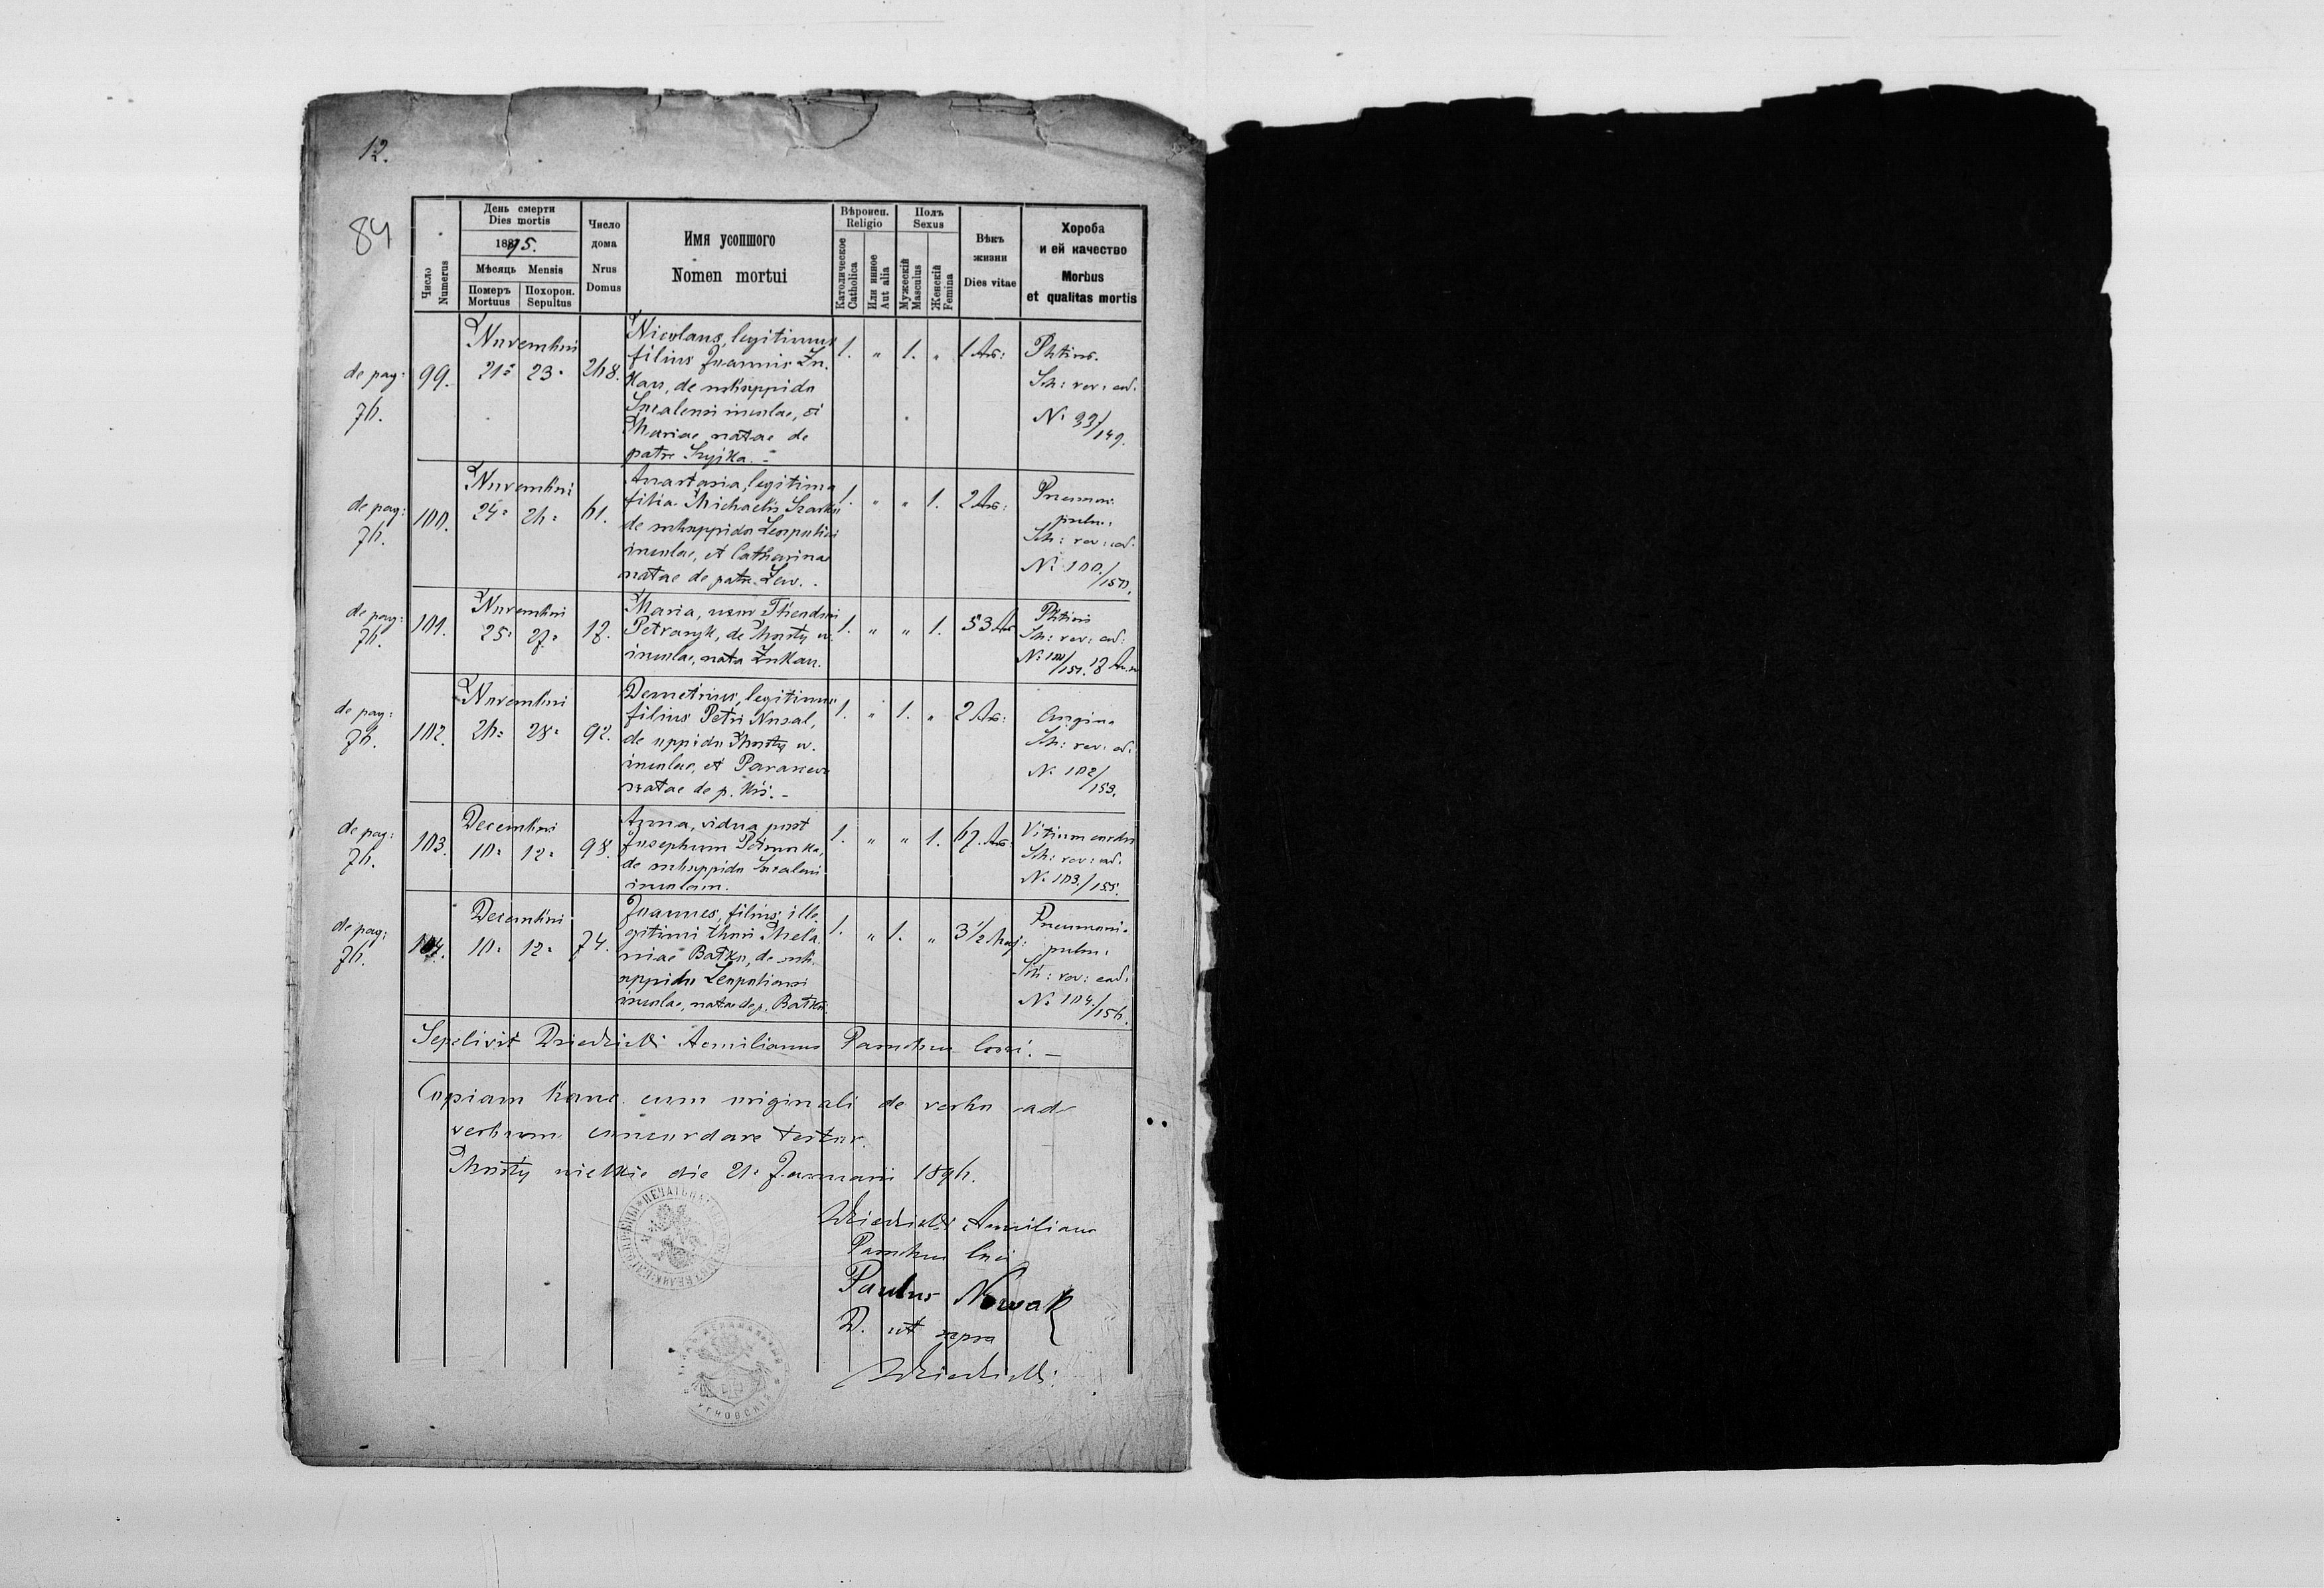 12.
84
Число
Numerus
День смерти
Dies mortis
1895.
Мѣсяць Mensis
Померъ
Mortuus
Похорон.
Sepultus
Число
дома
Nrus
Domus
Имя усопшого
Nomen mortui
Вѣроисп.
Religio
Католическое
Catholica
Или инное
Aut alia
Полъ
Sexus
Мужескій
Masculus
Женскій
Femina
Вѣкъ
жизни
Dies vitae
Хороба
и ей качество
Morbus
et qualitas mortis
de pag:
76.
99.
Novembri
21. 23.
268.
Nicolaus, legitimus
filius Joannis Zu
kau, de suboppido
incolae, et
Mariae natae de
patre Szyjka.
1. " 1. "
1 An:
Phtisis.
Sch: rev: cad:
N. 99/149.
de pag:
76.
100.
Novembri
24. 26.
61.
Anastasia, legitima
filia Michaelis
de suboppido
incolae, et Catharinae
natae de patre Lew.
1. " " 1.
2 An:
Pneumon.
pulm.
Sch: rev: cad:
N. 100./150.
de pag:
76.
101.
Novembri
25. 27.
17.
Maria, uxor Theodori
Petrasyk, de Mosty w.
incolae, nata Zukau.
1. " " 1.
53 An
Phtisis
Sch: rev: cad:
N. 101/151.
de pag:
76.
102.
Novembri
26. 28.
92.
Demetrius, legitimus
filius Petri Nosal,
de oppido Mosty w.
incolae, et Parascevae
natae de p. Kis. -
1. " 1. "
2 An:
Angina
Sch: rev: cad:
N. 102/153.
de pag:
76.
103.
Decembri
10. 12.
98.
Anna, vidua post
Josephum
de suboppido
incolam.
1. " " 1.
67. An:
Vitium cordis
Sch: rev: cad:
N. 103./155.
de pag:
76.
104.
Decembri
10. 12.
74.
Joannes, filius ille
gitimi thori Mela
niae Batko, de sub
oppido
incolae, natae de p. Batko.
1. " 1. "
3 1/2
Pneumoni.
pulm:
Sch: rev: cad:
N. 104./156.
Sepelivit Dziedzicki Aemilianus Parochus loci. -
Copiam hanc cum originali de verbo ad
verbum concordare testor.
Mosty wielkie die 21. Januarii 1896.
Dziedzicki Aemilianus
Parochus loci
Paulus Nowak
D. ut supra
Dziedzicki.